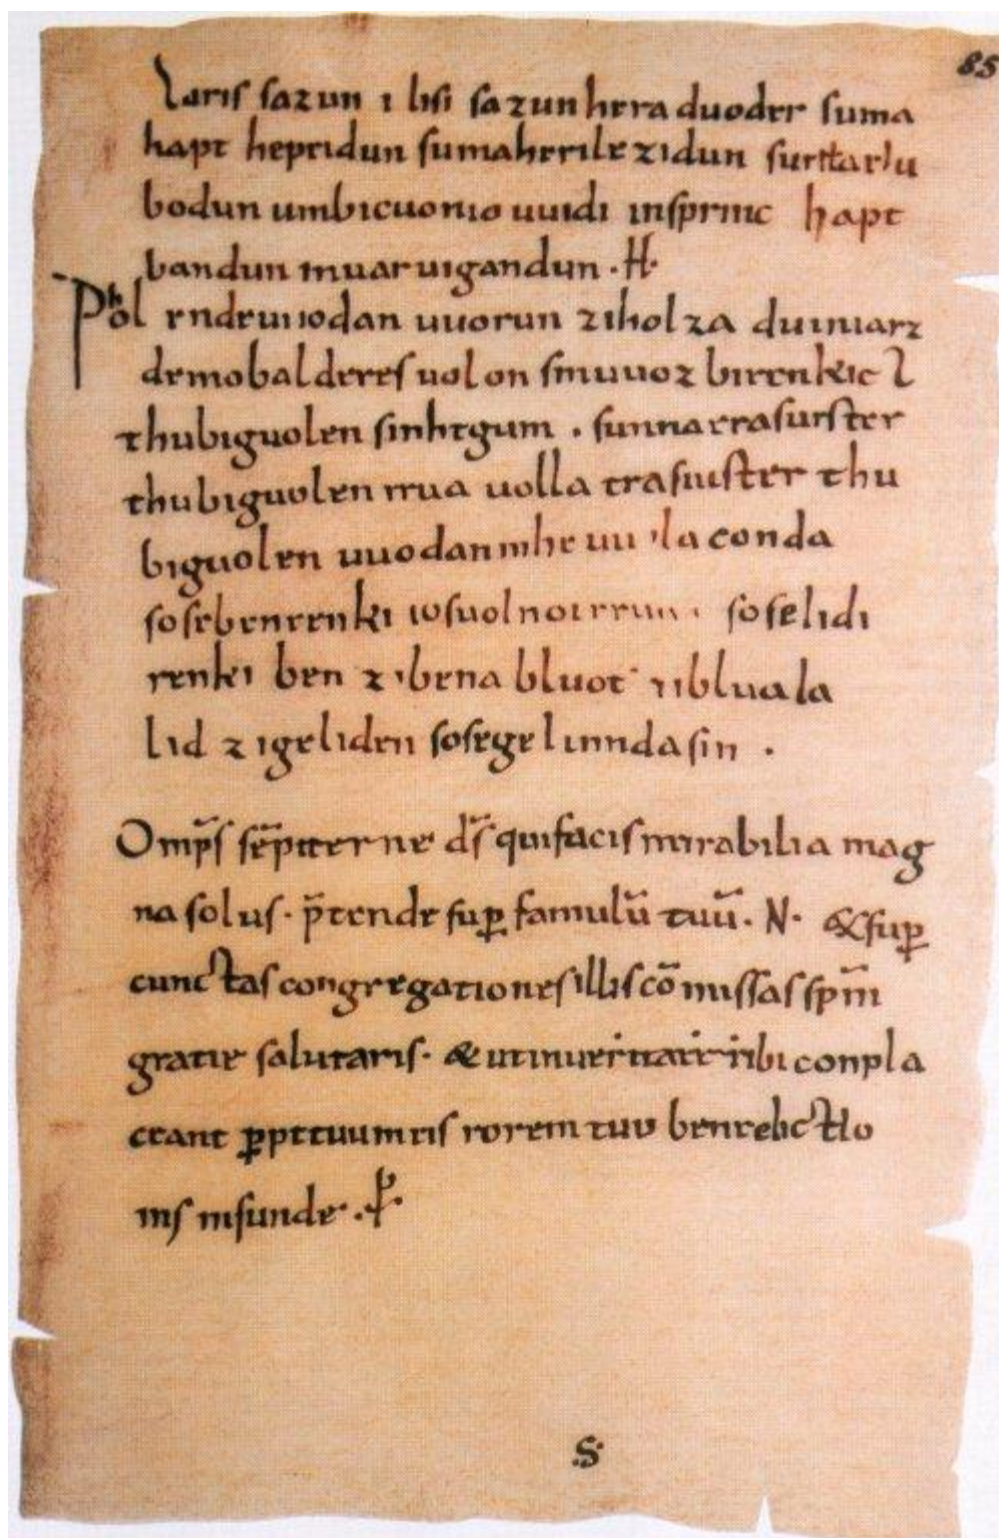 85
Eiris sazun idisi sazun hera duoder suma
hapt heptidun sumaherilezidun sumaclu
bodun umbicuoniouuidi insprinc hapt
bandun inuaruigandun · H ·
Phol endeuuodan uuorun ziholza duuuart
demobalderesuolon sinuuoz birenkict
thubiguolen sinhtgunt . sunnaerasuister
thubiguolen friia uolla erasuister thu
biguolen uuodan sohe uuola conda
sosebenrenki sosebluotrenki soselidi
renki ben zibena bluot zibluoda
lid zigeliden sosegelimidasin .
Omp̄s sēpiterne ds̄ quifacis mirabilia mag
na solus · p̄tende suꝑ famulū tuū · N · &suꝑ
cunctas congregationes illis cōmissas spm̄
gratie salutaris · & utinueritate tibi conpla
ceant ꝑpetuum eis rorem tuę benedictio
nis infunde · ꝑ ·
· S ·